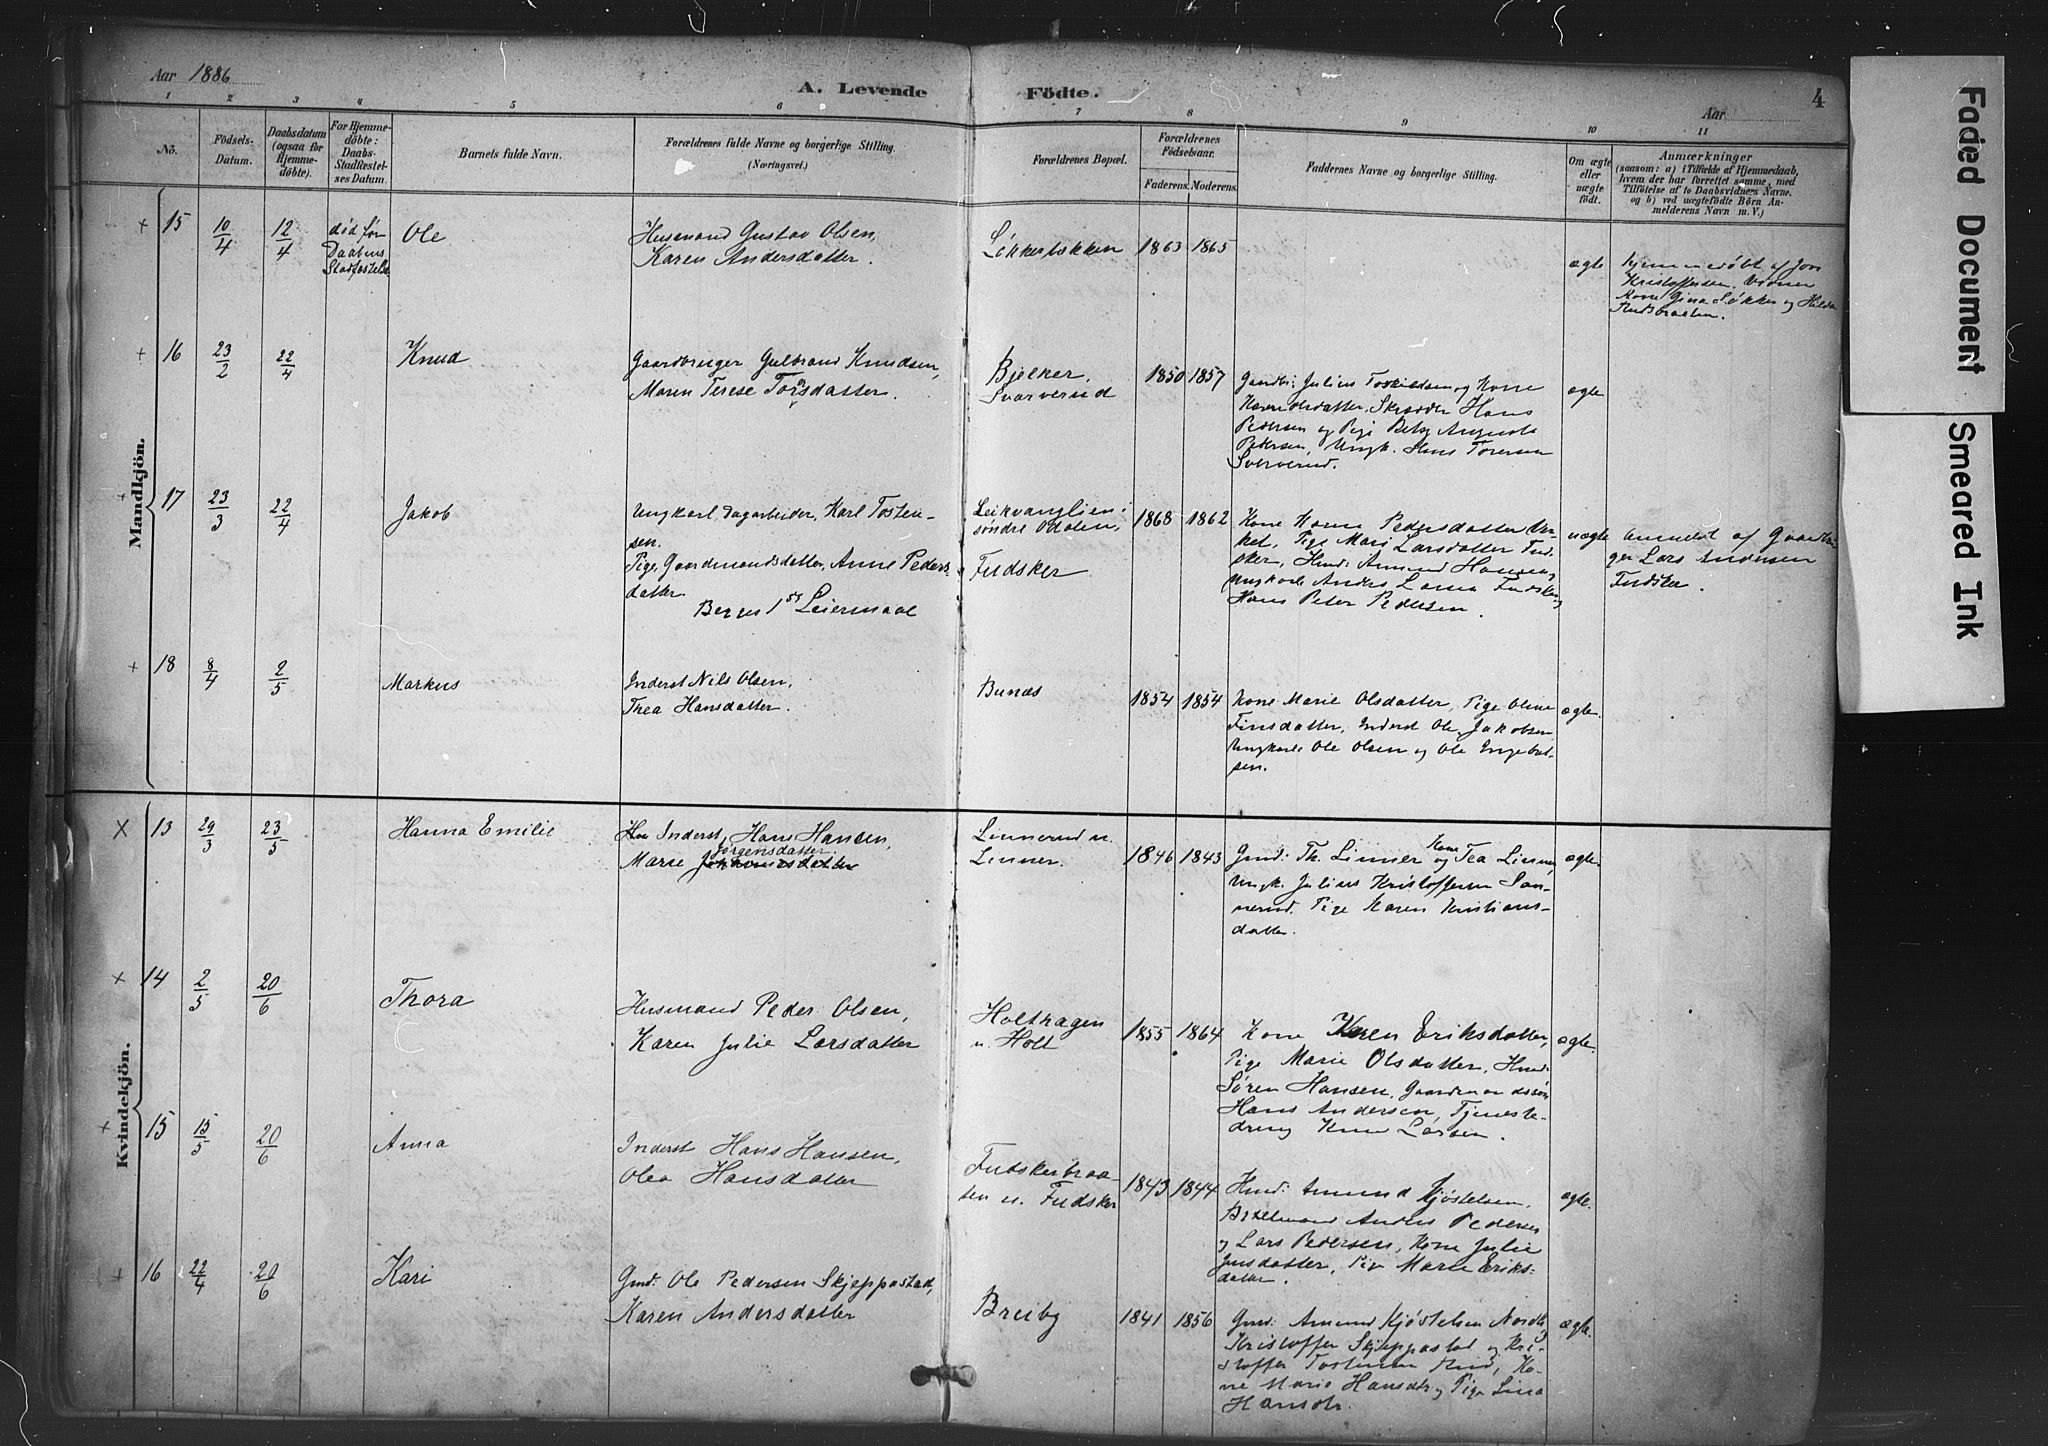 Aar 1886
A. Levende Födte.
Aar
4
1 2 3 4 5 6 7 8 9 10 11
No.
Födsels-Datum.
Daabsdatum (ogsaa for Hjemme-döbte).
For Hjemme-döbte: Daabs-Stadfæstel-ses Datum.
Barnets fulde Navn.
Forældrenes fulde Navne og borgerlige Stilling.
(Næringsvei.)
Forældrenes Bopæl.
Forældrenes Födselsaar.
Faderens. Moderens.
Faddernes Navne og borgerlige Stilling.
Om ægte eller uægte födt.
Anmærkninger
(saasom: a) i Tilfælde af Hjemmedaab,
hvem der har forrettet samme, med
Tilföielse af to Daabsvidners Navne.
og b) ved uægtefödte Börn An-
melderens Navn m. V.)
Mandkjön.
+ 15 10/4 12/4 død før Daabens Stadfæstelse Ole
Husmand Gustav Olsen,
Karen Andersdatter.
Løkkerbakken 1863 1865 ægte
hjemmedøbt af Jon
Kristoffersen. Vidner
Kone Gina Løkker og Hilda
+ 16 23/2 22/4 Knud
Gaardbruger Gulbrand Knudsen,
Maren Terese Torsdatter.
Bjølker,
Svarverud
1850 1857
Gaardbr: Julius Toskildsen og Kone
Karen Olsdatter, Skrædder Hans
Pedersen og Pige Auguste
Pedersen, Ungk. Hans Toresen
Sververud.
ægte
+ 17 23/3 22/4 Jakob
Ungkarl, Dagarbeider, Karl Tosten-
sen.
Pige, Gaardmandsdatter, Anne Peders-
datter.
Begges 1st Leiermaal
Leikvanglien i
søndre Odalen,
Fudsker.
1868 1862
Kone Karen Pedersdatter
Pige Mari Larsdatter Fud-
sker, Husmd: Amund Hansen,
Ungkarle Anders Larsen Fudsker og
Hans Peter Pedersen.
uægte
Anmeldt af Gaardbru-
ger Lars Andersen
Fudsker
+ 18 8/4 2/5 Markus
Inderst Nils Olsen,
Thea Hansdatter.
Bunæs
1854 1854
Kone Marie Olsdatter, Pige Oline
Finsdatter, Inderst Ole Jakobsen,
Ungkarle Ole Olsen og Ole Engebret-
sen.
ægte.
Kvindekjön.
X 13 29/3 23/5 Hanna Emilie
Inderst Hans Hansen,
Jørgensdatter.
Marie Johannesdatter
Linnerud u.
Linner.
1846 1843
Gmd: Th. Linner og Kone Tea Linner,
Ungk. Julius Kristoffersen San-
nerud. Pige Karen Kristians-
datter.
ægte.
X 14 2/5 20/6 Thora
Husmand Peder Olsen,
Karen Julie Larsdatter
Holthagen
u. Holt
1855 1864
Kone Karen Eriksdatter,
Pige Marie Olsdatter, Husmd:
Søren Hansen, Gaardmandssøn
Hans Andersen, Tjeneste-
dreng Knud Larsen.
ægte.
+ 15 15/5 20/6 Anna
Inderst Hans Hansen,
Olea Hansdatter
Fudskerbraa-
ten u. Fudsker
1843 1844
Husmd: Amund Kjøstelsen,
Anders Pedersen
og Lars Pedersen, Kone Julie
Jensdatter, Pige Marie Eriks-
datter.
ægte.
+ 16 22/4 20/6 Kari
Gmd: Ole Pedersen Skjeppastad,
Karen Andersdatter
Breiby
1841 1856
Gmd: Amund Kjøstelsen
Kristoffer Skjeppastad og Kri-
stoffer Tostensen Ko-
ne Marie Hansdtr og Pige Lina
Hansdtr.
ægte.
Faded Document
Smeared Ink